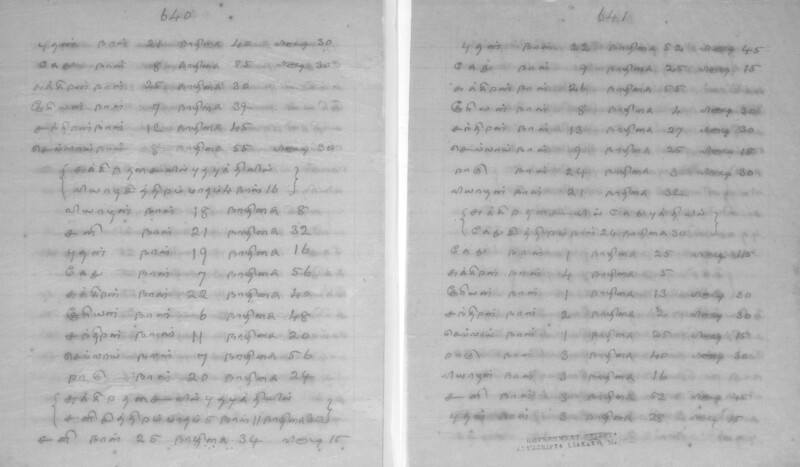 640
புதன் நாள் 21 நாழிகை 40 30
கேது நாள் 8 நாழிகை 55 30
சுக்கிரன் நாள் 25 நாழிகை 30
சூரியன் நாள் 7 நாழிகை 39
சந்திரன் நாள் 12 நாழிகை 45
செவ்வாய் நாள் 8 நாழிகை 55 30
சுக்கிர தசையில் புதபுத்தியில்
மாதம் 4 நாள் 16
வியாழன் நாள் 18 நாழிகை 8
சனி நாள் 21 நாழிகை 32
புதன் நாள் 19 நாழிகை 16
கேது நாள் 7 நாழிகை 56
சுக்கிரன் நாள் 22 நாழிகை 40
சூரியன் நாள் 6 நாழிகை 48
சந்திரன் நாள் 11 நாழிகை 20
செவ்வாய் நாள் 7 நாழிகை 56
ராகு நாள் 20 நாழிகை 24
சுக்கிர தசையில் புதபுத்தியில்
மாதம் 5 நாள் 11 நாழிகை 30
சனி நாள் 25 நாழிகை 34 15
641
புதன் நாள் 22 நாழிகை 52 45
கேது நாள் 9 நாழிகை 25 15
சுக்கிரன் நாள் 26 நாழிகை 55
சூரியன் நாள் 8 நாழிகை 4 30
சந்திரன் நாள் 13 நாழிகை 27 30
செவ்வாய் நாள் 9 நாழிகை 25 15
ராகு நாள் 24 நாழிகை 3 30
வியாழன் நாள் 21 நாழிகை 32
சுக்கிர தசையில் கேதுபுத்தியில்
நாள் 24 நாழிகை 30
கேது நாள் 1 நாழிகை 25 45
சுக்கிரன் நாள் 4 நாழிகை 5
சூரியன் நாள் 1 நாழிகை 13 30
சந்திரன் நாள் 2 நாழிகை 2 30
செவ்வாய் நாள் 1 நாழிகை 25 15
ராகு நாள் 3 நாழிகை 40 30
வியாழன் நாள் 3 நாழிகை 16
சனி நாள் 3 நாழிகை 52 45
புதன் நாள் 3 நாழிகை 28 15